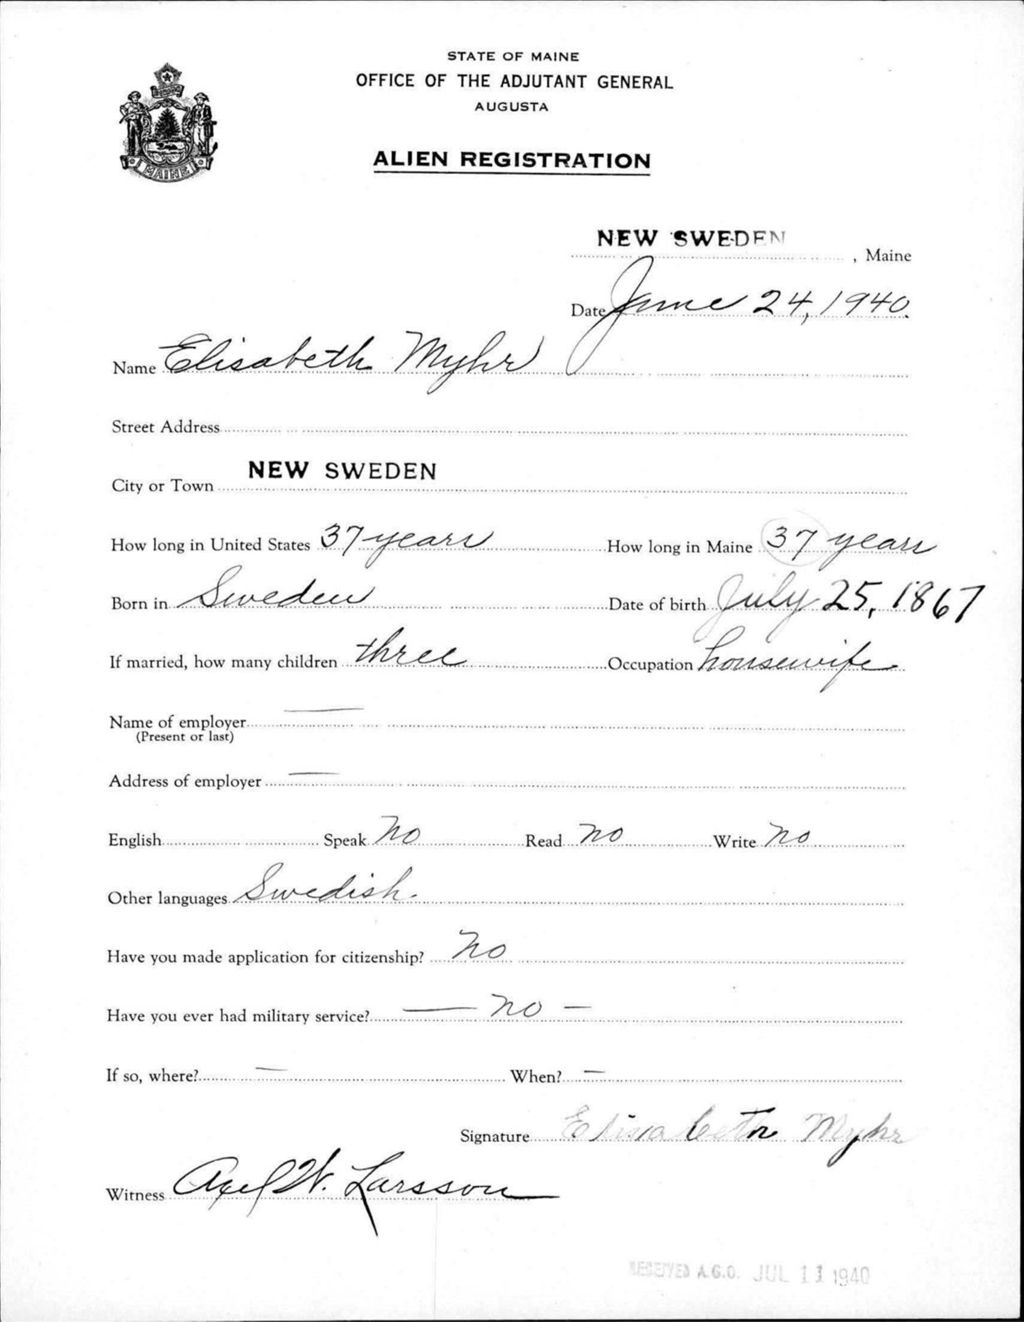 STATE OF MAINE
OFFICE OF THE ADJUTANT GENERAL
AUGUSTA
ALIEN REGISTRATION
MAINE
NEW SWEDEN, Maine
Date June 24, 1940.
Name Elisabeth Myhr
Street Address
City or Town NEW SWEDEN
How long in United States 37 years How long in Maine 37 years
Born in Sweden Date of birth July 25, 1867
If married, how many children three Occupation housewife
Name of employer —
(Present or last)
Address of employer —
English Speak No Read no Write no
Other languages Swedish.
Have you made application for citizenship? no
Have you ever had military service? — no —
If so, where? — When? —
Signature Elisabeth Myhr
Witness Axel W. Larsson
RECEIVED A.G.O. JUL 11 1940